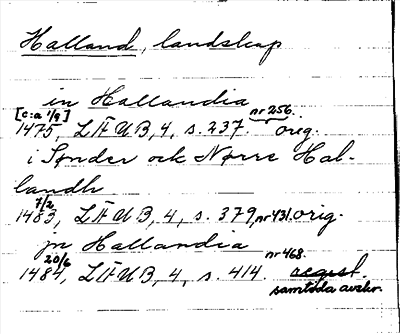 Halland, landskap
in Hallandia
[c:a 1/9] nr 256.
1475, LÄUB, 4, s. 237. orig.
i Sønder ock Nørre Hal-
landh
7/2
1483, LÄUB, 4, s. 379, nr 431. orig.
jn Hallandia
20/6 nr 468.
1484, LÄUB, 4, s. 414. avskr.
samtida avskr.